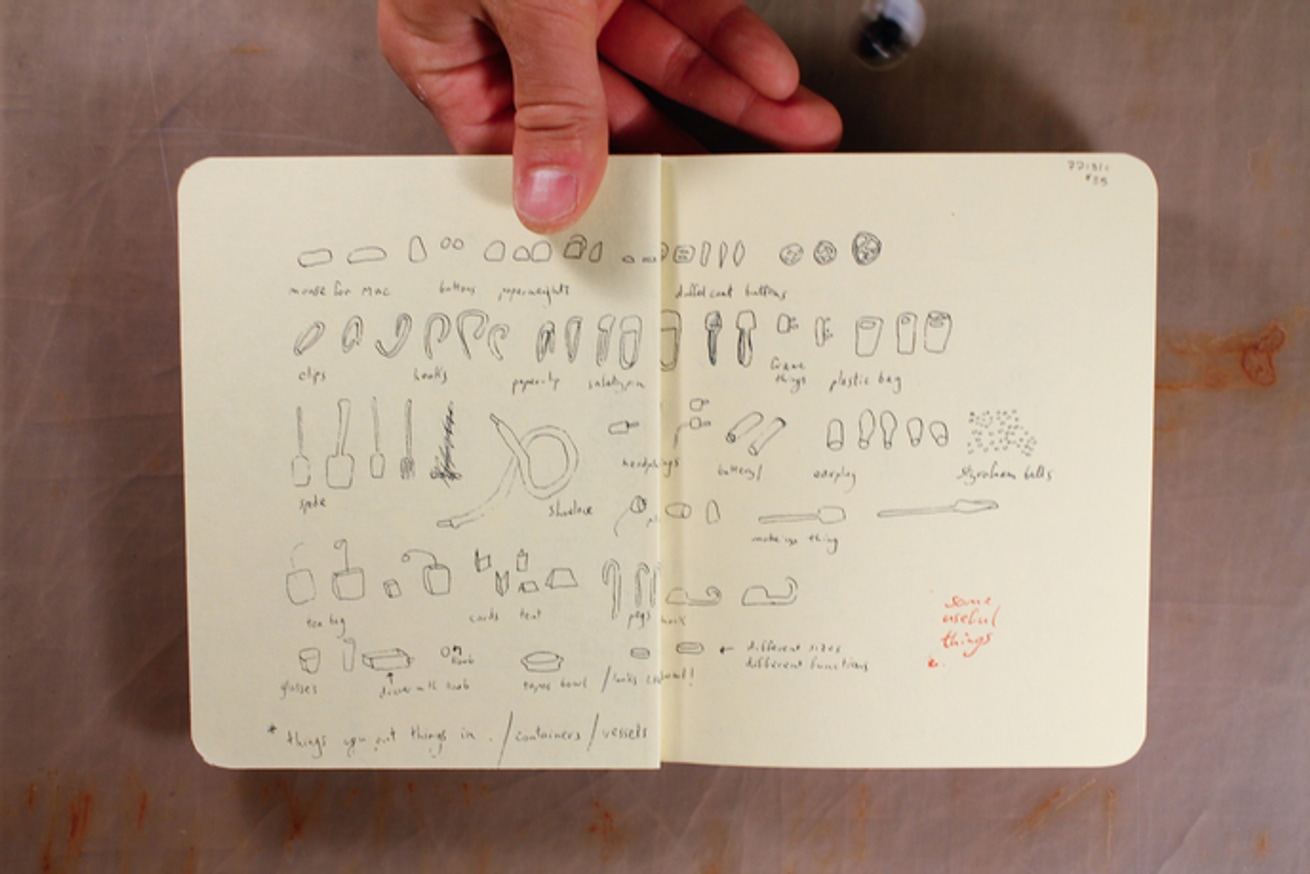 mouse for Mac buttons paperweights duffel coat buttons
clips hooks paperclip safety pin things plastic bag
headphones battery/ earplug Styrofoam balls
spade Shoelace
making thing
tea bag cards tent pegs hook
some
useful
things
different sizes
different functions
glasses drawer with knob knob tapas bowl /
* things you put things in . / containers / vessels